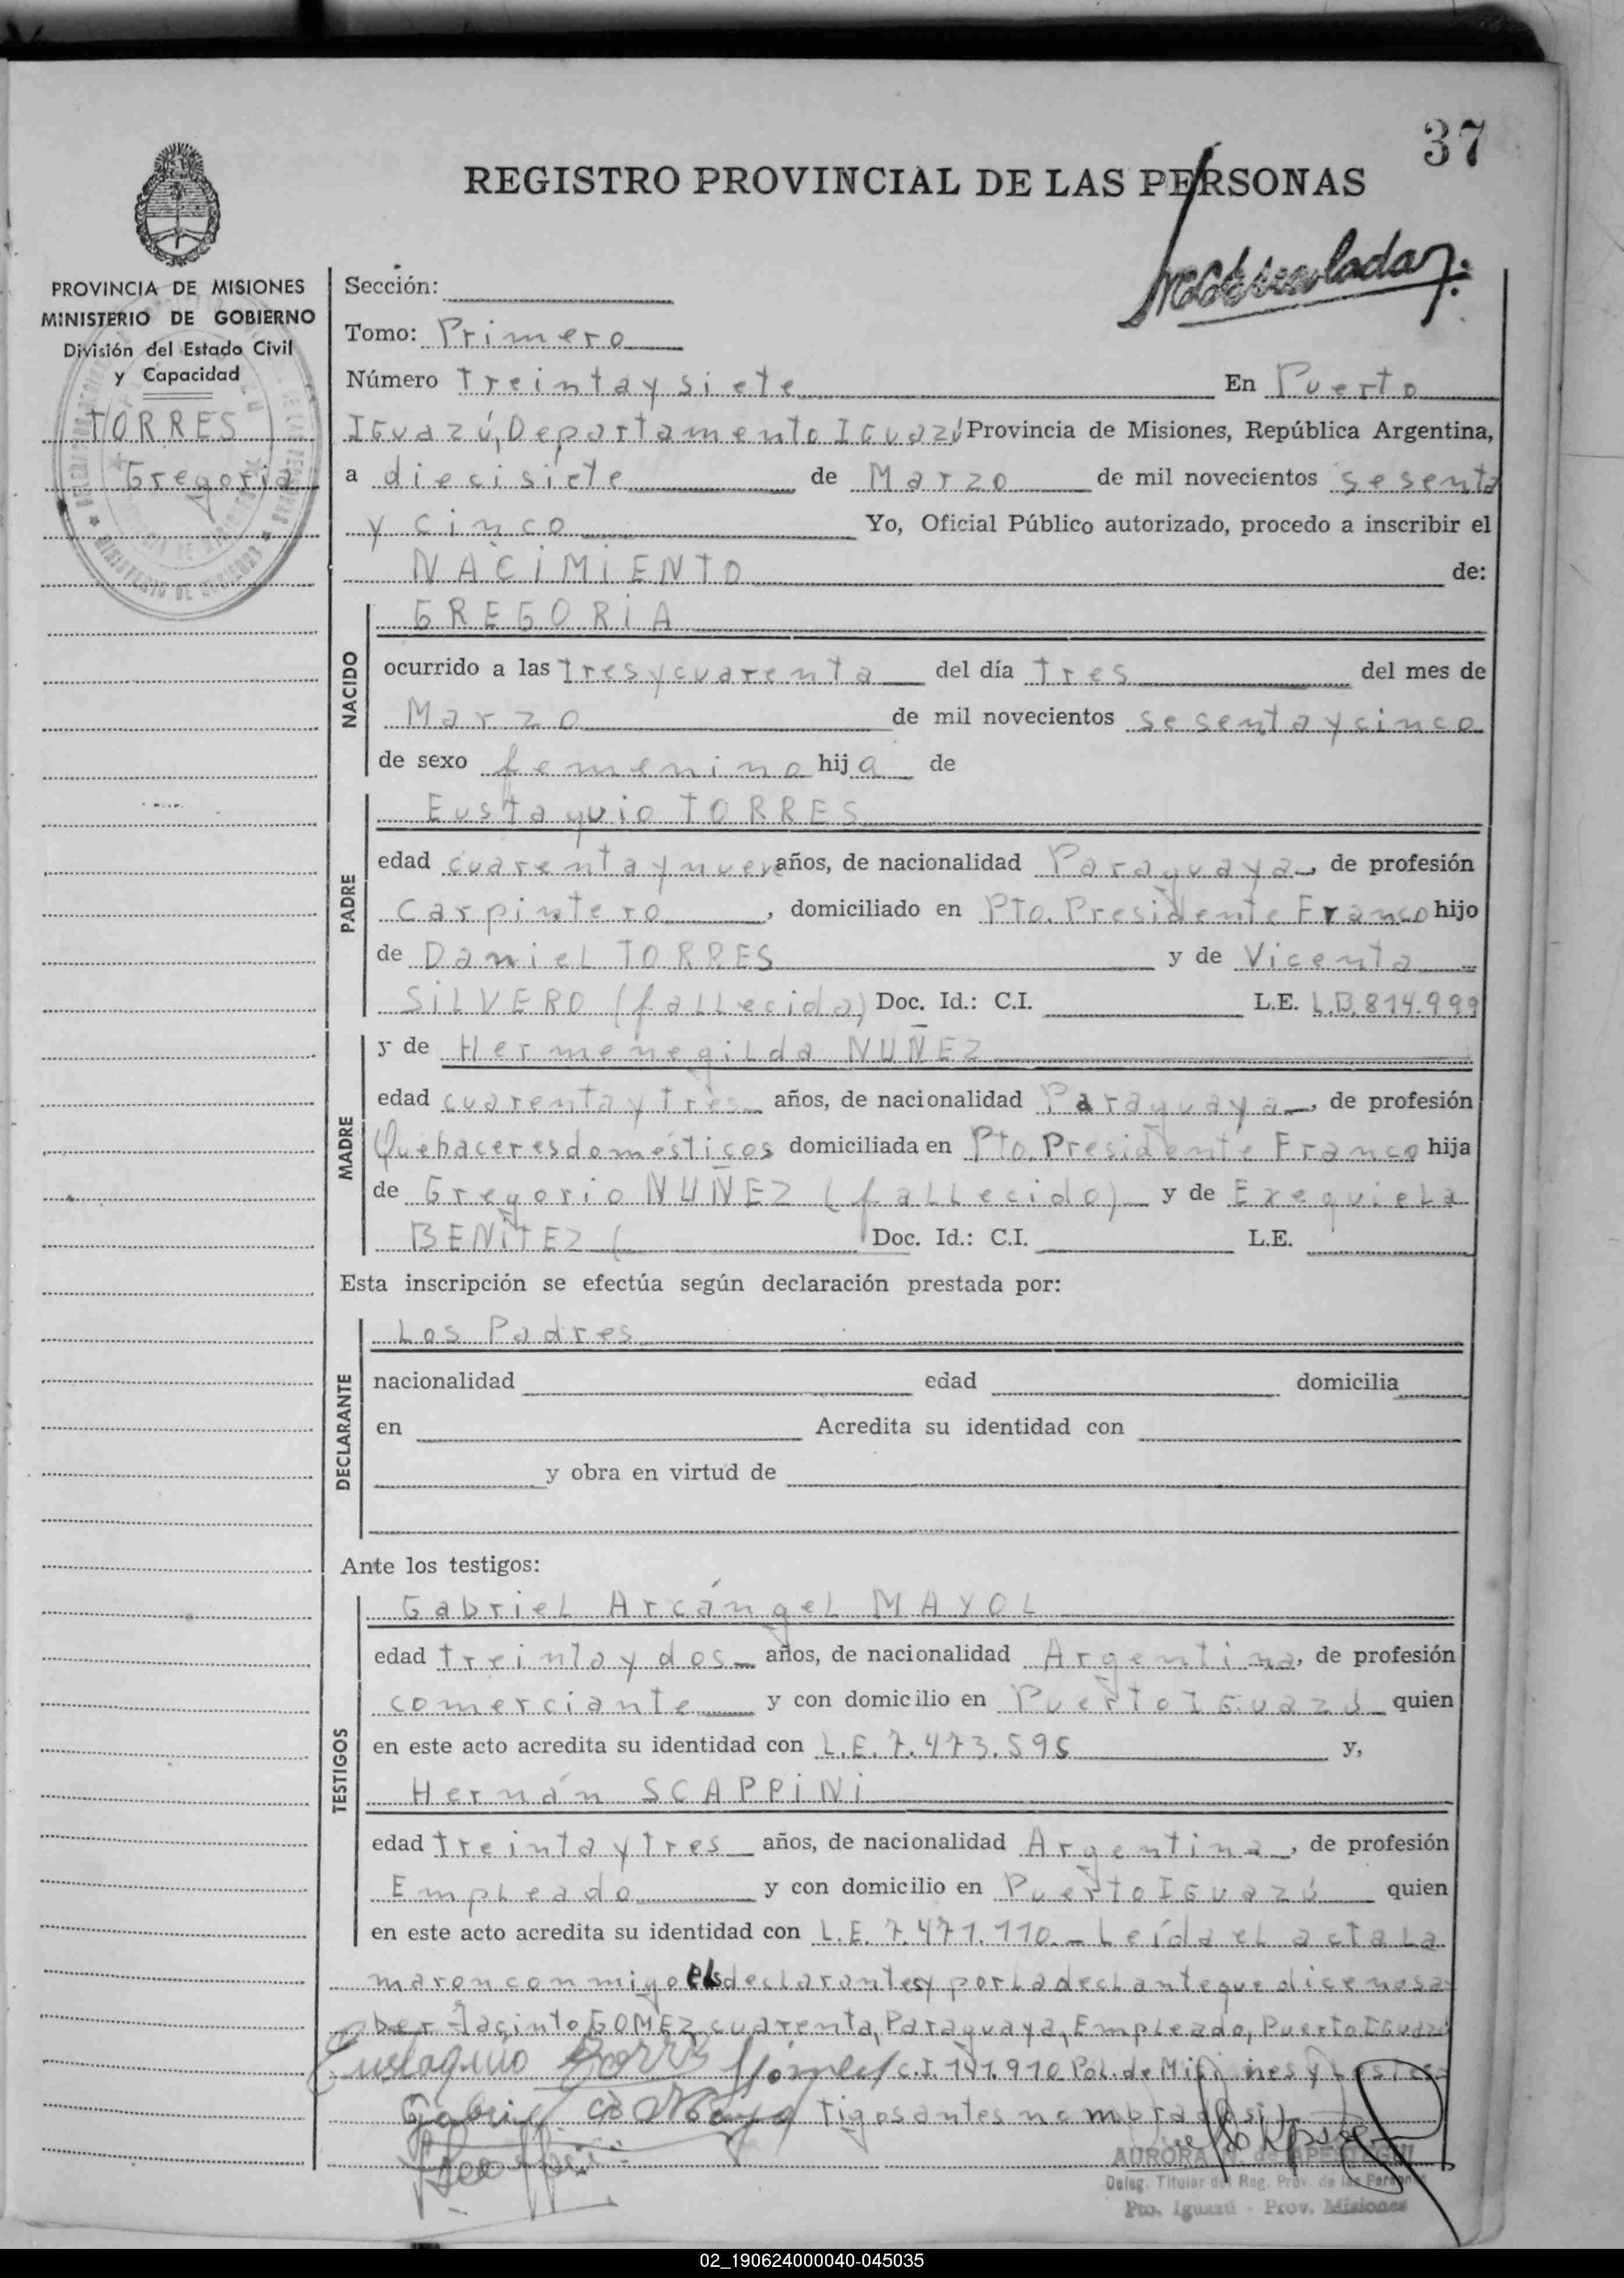 37
REGISTRO PROVINCIAL DE LAS PERSONAS
PROVINCIA DE MISIONES
MINISTERIO DE GOBIERNO
División del Estado Civil
y Capacidad
TORRES
Gregoria
Sección:
Tomo: Primero
Número treinta y siete En Puerto
IGuazú, Departamento IGuazú Provincia de Misiones, República Argentina,
a diecisiete de Marzo de mil novecientos sesenta
y cinco Yo, Oficial Público autorizado, procedo a inscribir el
NACIMIENTO de:
NACIDO
GREGORIA
ocurrido a las tres y cuarenta del día tres del mes de
Marzo de mil novecientos sesenta y cinco
de sexo femenino hija de
PADRE
Eustaquio TORRES
edad cuarenta y nueve años, de nacionalidad Paraguaya, de profesión
carpintero, domiciliado en Pto. Presidente Franco hijo
de Daniel TORRES y de Vicenta
SILVERO (fallecida) Doc. Id.: C.I. L.E. L.B. 814.999
MADRE
y de Hermenegilda NUÑEZ
edad cuarenta y tres años, de nacionalidad Paraguaya, de profesión
Quehaceres domésticos domiciliada en Pto. Presidente Franco hija
de Gregorio NUÑEZ (fallecido) y de Exequiela
BENITEZ ( Doc. Id.: C.I. L.E.
Esta inscripción se efectúa según declaración prestada por:
DECLARANTE
Los Padres
nacionalidad edad domicilia
en Acredita su identidad con
y obra en virtud de
Ante los testigos:
TESTIGOS
Gabriel Arcángel MAYOL
edad treinta y dos años, de nacionalidad Argentina, de profesión
comerciante y con domicilio en Puerto IGuazú quien
en este acto acredita su identidad con L.E. 7.473.595 y,
Hernán SCAPPINI
edad treinta y tres años, de nacionalidad Argentina, de profesión
Empleado y con domicilio en Puerto IGuazú quien
en este acto acredita su identidad con L.E. 7.471.110 - Leída el acta la
maron conmigo els declarantes y por la declante que dice no sa
ber Jacinto GOMEZ, cuarenta, Paraguaya, Empleado, Puerto IGuazú
Eustaquio Torres C.I. 141.910 Pol. de Misiones y los tes
tigos antes nombrados
AURORA
Deleg. Titular del Reg. Prov. de las Personas
Pto. Iguazú - Prov. Misiones
02_190624000040-045035